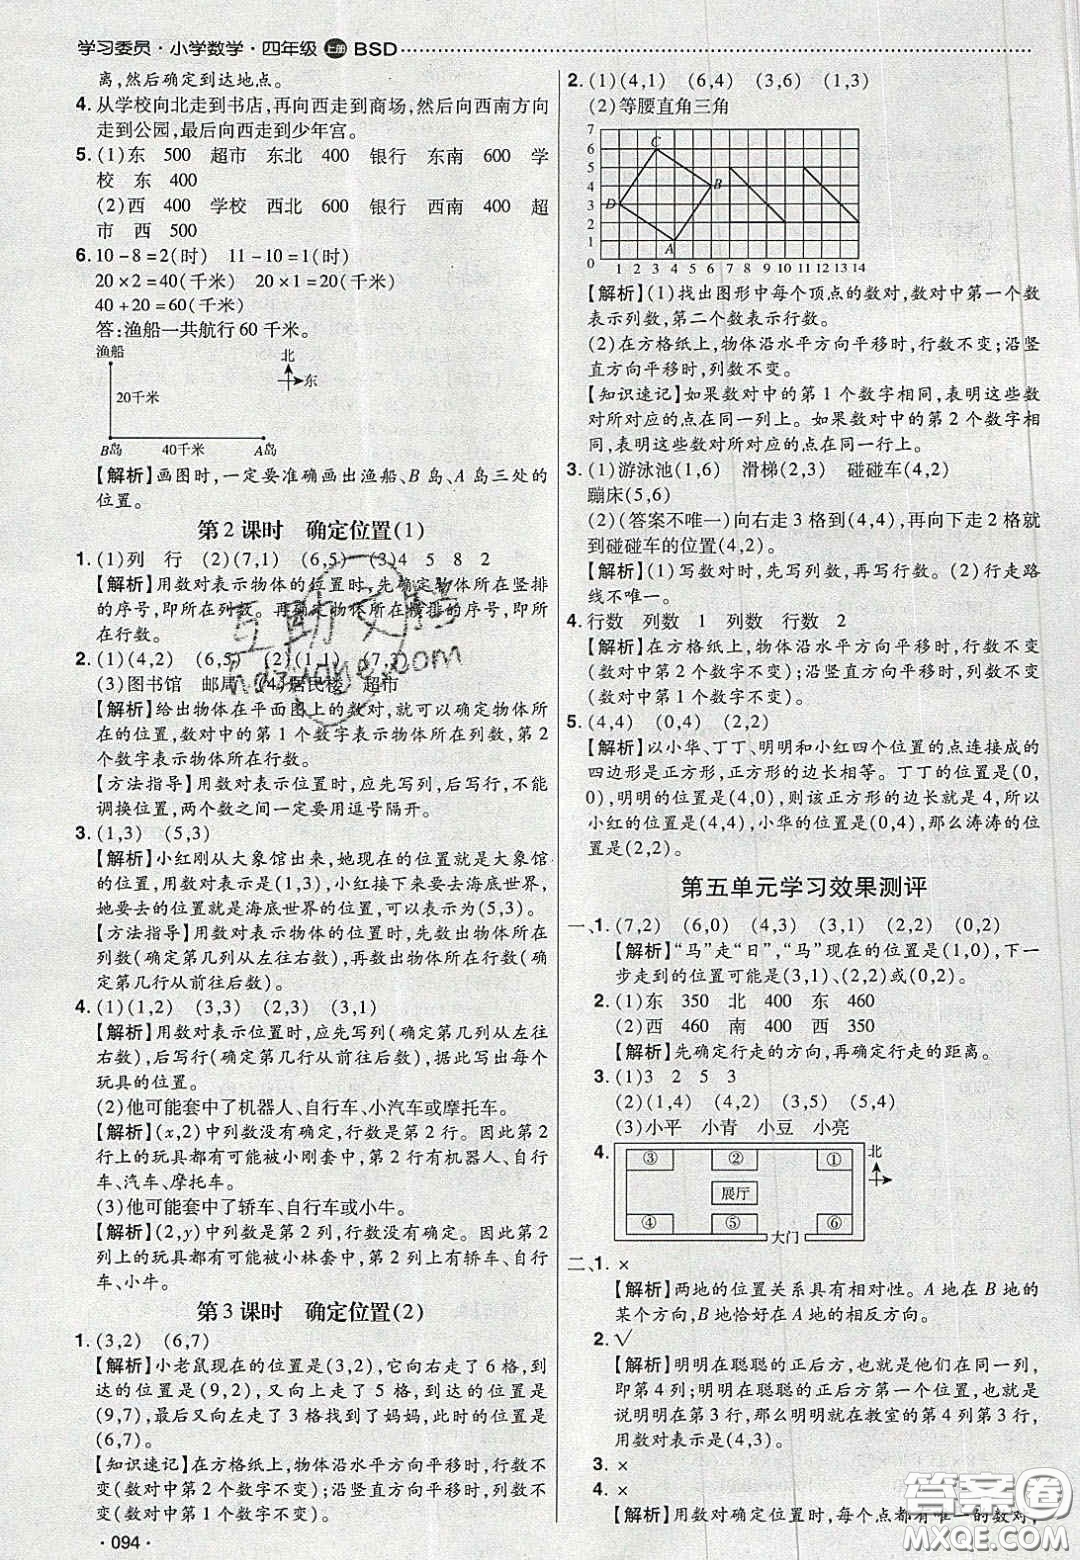 学习委员·小学数学·四年级 上册 BSD
离,然后确定到达地点。
4.从学校向北走到书店,再向西走到商场,然后向西南方向
走到公园,最后向西走到少年宫。
5.(1)东 500 超市 东北 400 银行 东南 600 学
校 东 400
(2)西 400 学校 西北 600 银行 西南 400 超
市 西 500
6. 10-8=2(时) 11-10=1(时)
20×2=40(千米) 20×1=20(千米)
40+20=60(千米)
答:渔船一共航行60千米。
渔船
北
东
20千米
B岛 40千米 A岛
【解析】画图时,一定要准确画出渔船、B岛、A岛三处的
位置。
第2课时 确定位置(1)
1.(1)列 行 (2)(7,1) (6,5) (3)4 5 8 2
【解析】用数对表示物体的位置时,先确定物体所在竖排
的序号,即所在列数。再确定物体所在横排的序号,即所
在行数。
2.(1)(4,2) (6,5) (2)(1,1) (7,3)
(3)图书馆 邮局 (4)居民楼 超市
【解析】给出物体在平面图上的数对,就可以确定物体所
在的位置,数对中的第1个数字表示物体所在列数,第2
个数字表示物体所在行数。
【方法指导】用数对表示位置时,应先写列,后写行,不能
调换位置,两个数之间一定要用逗号隔开。
3.(1,3) (5,3)
【解析】小红刚从大象馆出来,她现在的位置就是大象馆
的位置,即是(1,3),她想接下来去海底世界,所以
她要去的位置就是海底世界的位置,即是(5,3)。
【方法指导】用数对表示物体的位置时,先数出物体所在
列数(确定第几列从左往右数),再数出物体所在行数(确
定第几行从前往后数)。
4.(1)(1,2) (3,3) (2,3) (3,1)
【解析】用数对表示位置时,应先写列(确定第几列从左往
右数),后写行(确定第几行从前往后数),据此写出每个
玩具的位置。
(2)他可能套中了机器人、自行车、小汽车或摩托车。
【解析】(x,2)中列数没有确定,行数是第2行。因此第2
行上的玩具都有可能被小刚套中,第2行有机器人、自行
车、汽车、摩托车。
(3)他可能套中了轿车、自行车或小牛。
【解析】(2,y)中列数是第2列,行数没有确定。因此第2
列上的玩具都有可能被小林套中,第2列有轿车、自行
车、小牛。
第3课时 确定位置(2)
1.(3,2) (6,7)
【解析】小老鼠现在的位置是(3,2),它向右走了6格,到
达的位置是(9,2),又向上走了5格,到达的位置是
(9,7),最后又向左走了3格找到了妈妈,此时的位置是
(6,7)。
【知识速记】在方格纸上,物体沿水平方向平移时,行数不
变(数对中第2个数字不变);沿竖直方向平移时,列数不
变(数对中第1个数字不变)。
·094·
2.(1)(4,1) (6,4) (3,6) (1,3)
(2)等腰直角三角
7
6
5
4
3
2
1
0 1 2 3 4 5 6 7 8 9 10 11 12 13 14
C
B
D
A
【解析】(1)找出图形中每个顶点的数对,数对中第一个数
表示列数,第二个数表示行数。
(2)在方格纸上,物体沿水平方向平移时,行数不变;沿竖
直方向平移时,列数不变。
【知识速记】如果数对中的第1个数字相同,表明这些数
对所对应的点在同一列上。如果数对中的第2个数字相
同,表明这些数对所对应的点在同一行上。
3.(1)游泳池(1,6) 滑梯(2,3) 碰碰车(4,2)
蹦床(5,6)
(2)(答案不唯一)向右走3格到(4,4),再向下走2格就
到碰碰车的位置(4,2)。
【解析】(1)写数对时,先写列数,再写行数。(2)行走路
线不唯一。
4.行数 列数 1 列数 行数 2
【解析】在方格纸上,物体沿水平方向平移时,行数不变
(数对中第2个数字不变);沿竖直方向平移时,列数不变
(数对中第1个数字不变)。
5.(4,4) (0,4) (2,2)
【解析】以小华、丁丁、明明和小红四个位置的点连接成的
四边形是正方形,正方形的边长相等。丁丁的位置是(0,
0),明明的位置是(4,0),则该正方形的边长就是4,所以
小红的位置是(4,4),小华的位置是(0,4),那么涛涛的位
置是(2,2)。
第五单元学习效果测评
一、1.(7,2) (6,0) (4,3) (3,1) (2,2) (0,2)
【解析】“马”走“日”,“马”现在的位置是(1,0),下一
步走到的位置可能是(3,1)、(2,2)或(0,2)。
2.(1)东 350 北 400 东 460
(2)西 460 南 400 西 350
【解析】先确定行走的方向,再确定行走的距离。
3.(1)3 2 5 3
(2)(1,4) (2,4) (3,5) (5,4)
(3)小平 小青 小豆 小亮
4.
③ ② ①
展厅
④ ⑤ ⑥
大门
北
二、1. ×
【解析】两地的位置关系具有相对性。A地在B地的
某个方向,B地恰好在A地的相反方向。
2. √
【解析】明明在聪聪的正后方,他们就在同一列,
即第4列;明明在聪聪的正后方第一个位置,也就是
说明明在第3行,那么明明就在教室的第4列第3行,
用数对表示是(4,3)。
3. ×
4. ×
【解析】用数对确定位置时,每个点都有唯一的数对,
互助文档
hdzuoye.com
答案圈
MXQE.COM